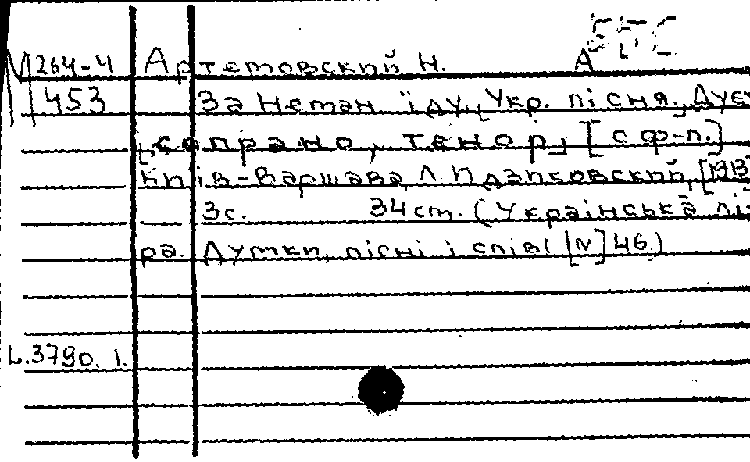 М 264-4 Артемовский Н. А
453 За Неман їду. Укр. пісня. Дует
[сопрано, тенор] [с ф-п.]
Київ-Варшава, Л. Идзиковский, [1913
3с. 34 cm. (Українська лі
ра. Думки, пісні і співи [N] 46.)
L.3790.1.